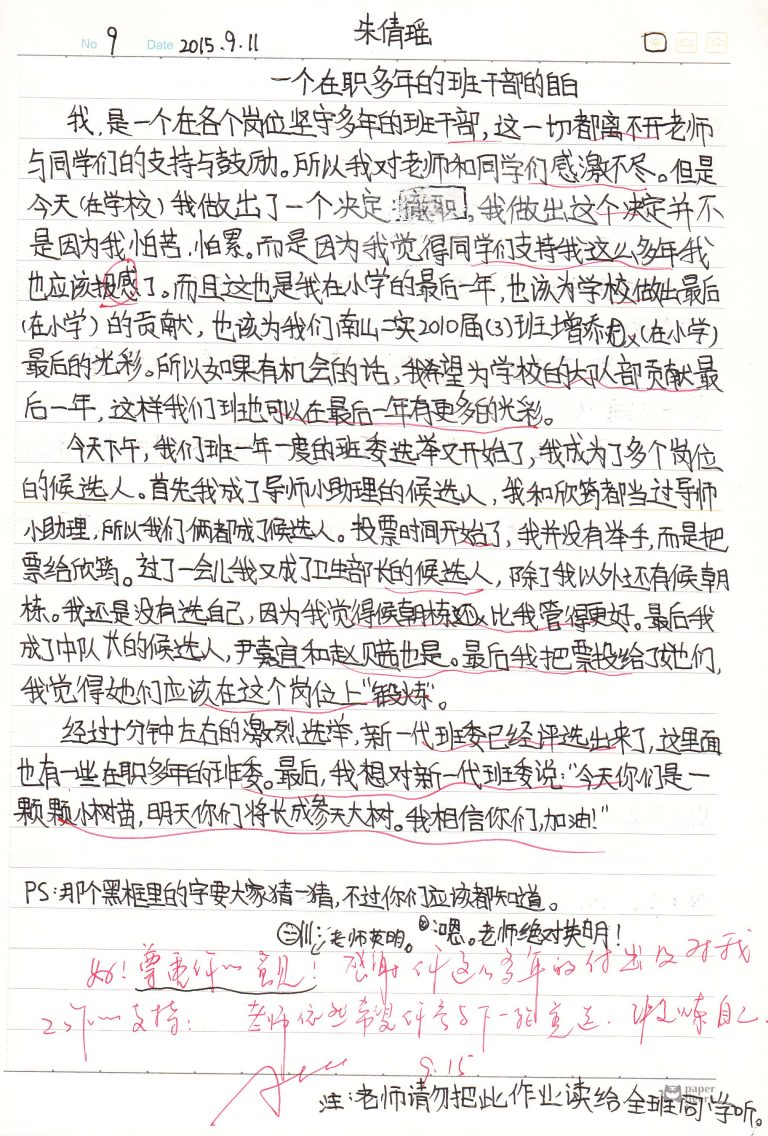 朱倩瑶
No 9 Date 2015.9.11
一个在职多年的班干部的自白
我,是一个在各个岗位坚守多年的班干部,这一切都离不开老师
与同学们的支持与鼓励。所以我对老师和同学们感激不尽。但是
今天(在学校)我做出了一个决定:撤职。我做出这个决定并不
是因为我怕苦,怕累。而是因为我觉得同学们支持我这么多年我
也应该报感了。而且这也是我在小学的最后一年,也该为学校做出最后
(在小学)的贡献,也该为我们南山二实2010届(3)班增添(在小学)
最后的光彩。所以如果有机会的话,我希望为学校的大队部贡献最
后一年,这样我们班也可以在最后一年有更多的光彩。
今天下午,我们班一年一度的班委选举又开始了,我成为了多个岗位
的候选人。首先我成了导师小助理的候选人,我和欣筠都当过导师
小助理,所以我们俩都成了候选人。投票时间开始了,我并没有举手,而是把
票给欣筠。过了一会儿我又成了卫生部长的候选人,除了我以外还有候朝
栋。我还是没有选自己,因为我觉得候朝栋比我管得更好。最后我
成了中队长的候选人,尹嘉宜和赵贝茜也是。最后我把票投给了她们,
我觉得她们应该在这个岗位上“锻炼”。
经过十分钟左右的激烈选举,新一代班委已经评选出来了,这里面
也有一些在职多年的班委。最后,我想对新一代班委说:“今天你们是一
颗颗小树苗,明天你们将长成参天大树。我相信你们,加油!”
PS:那个黑框里的字要大家猜一猜,不过你们应该都知道。
老师英明。 :嗯。老师绝对英明!
好!尊重你的意见!感谢你这么多年的付出及对我
工作的支持! 老师依然希望你参与下一轮竞选,锻炼自己.
9.15
注:老师请勿把此作业读给全班同学听。
paper